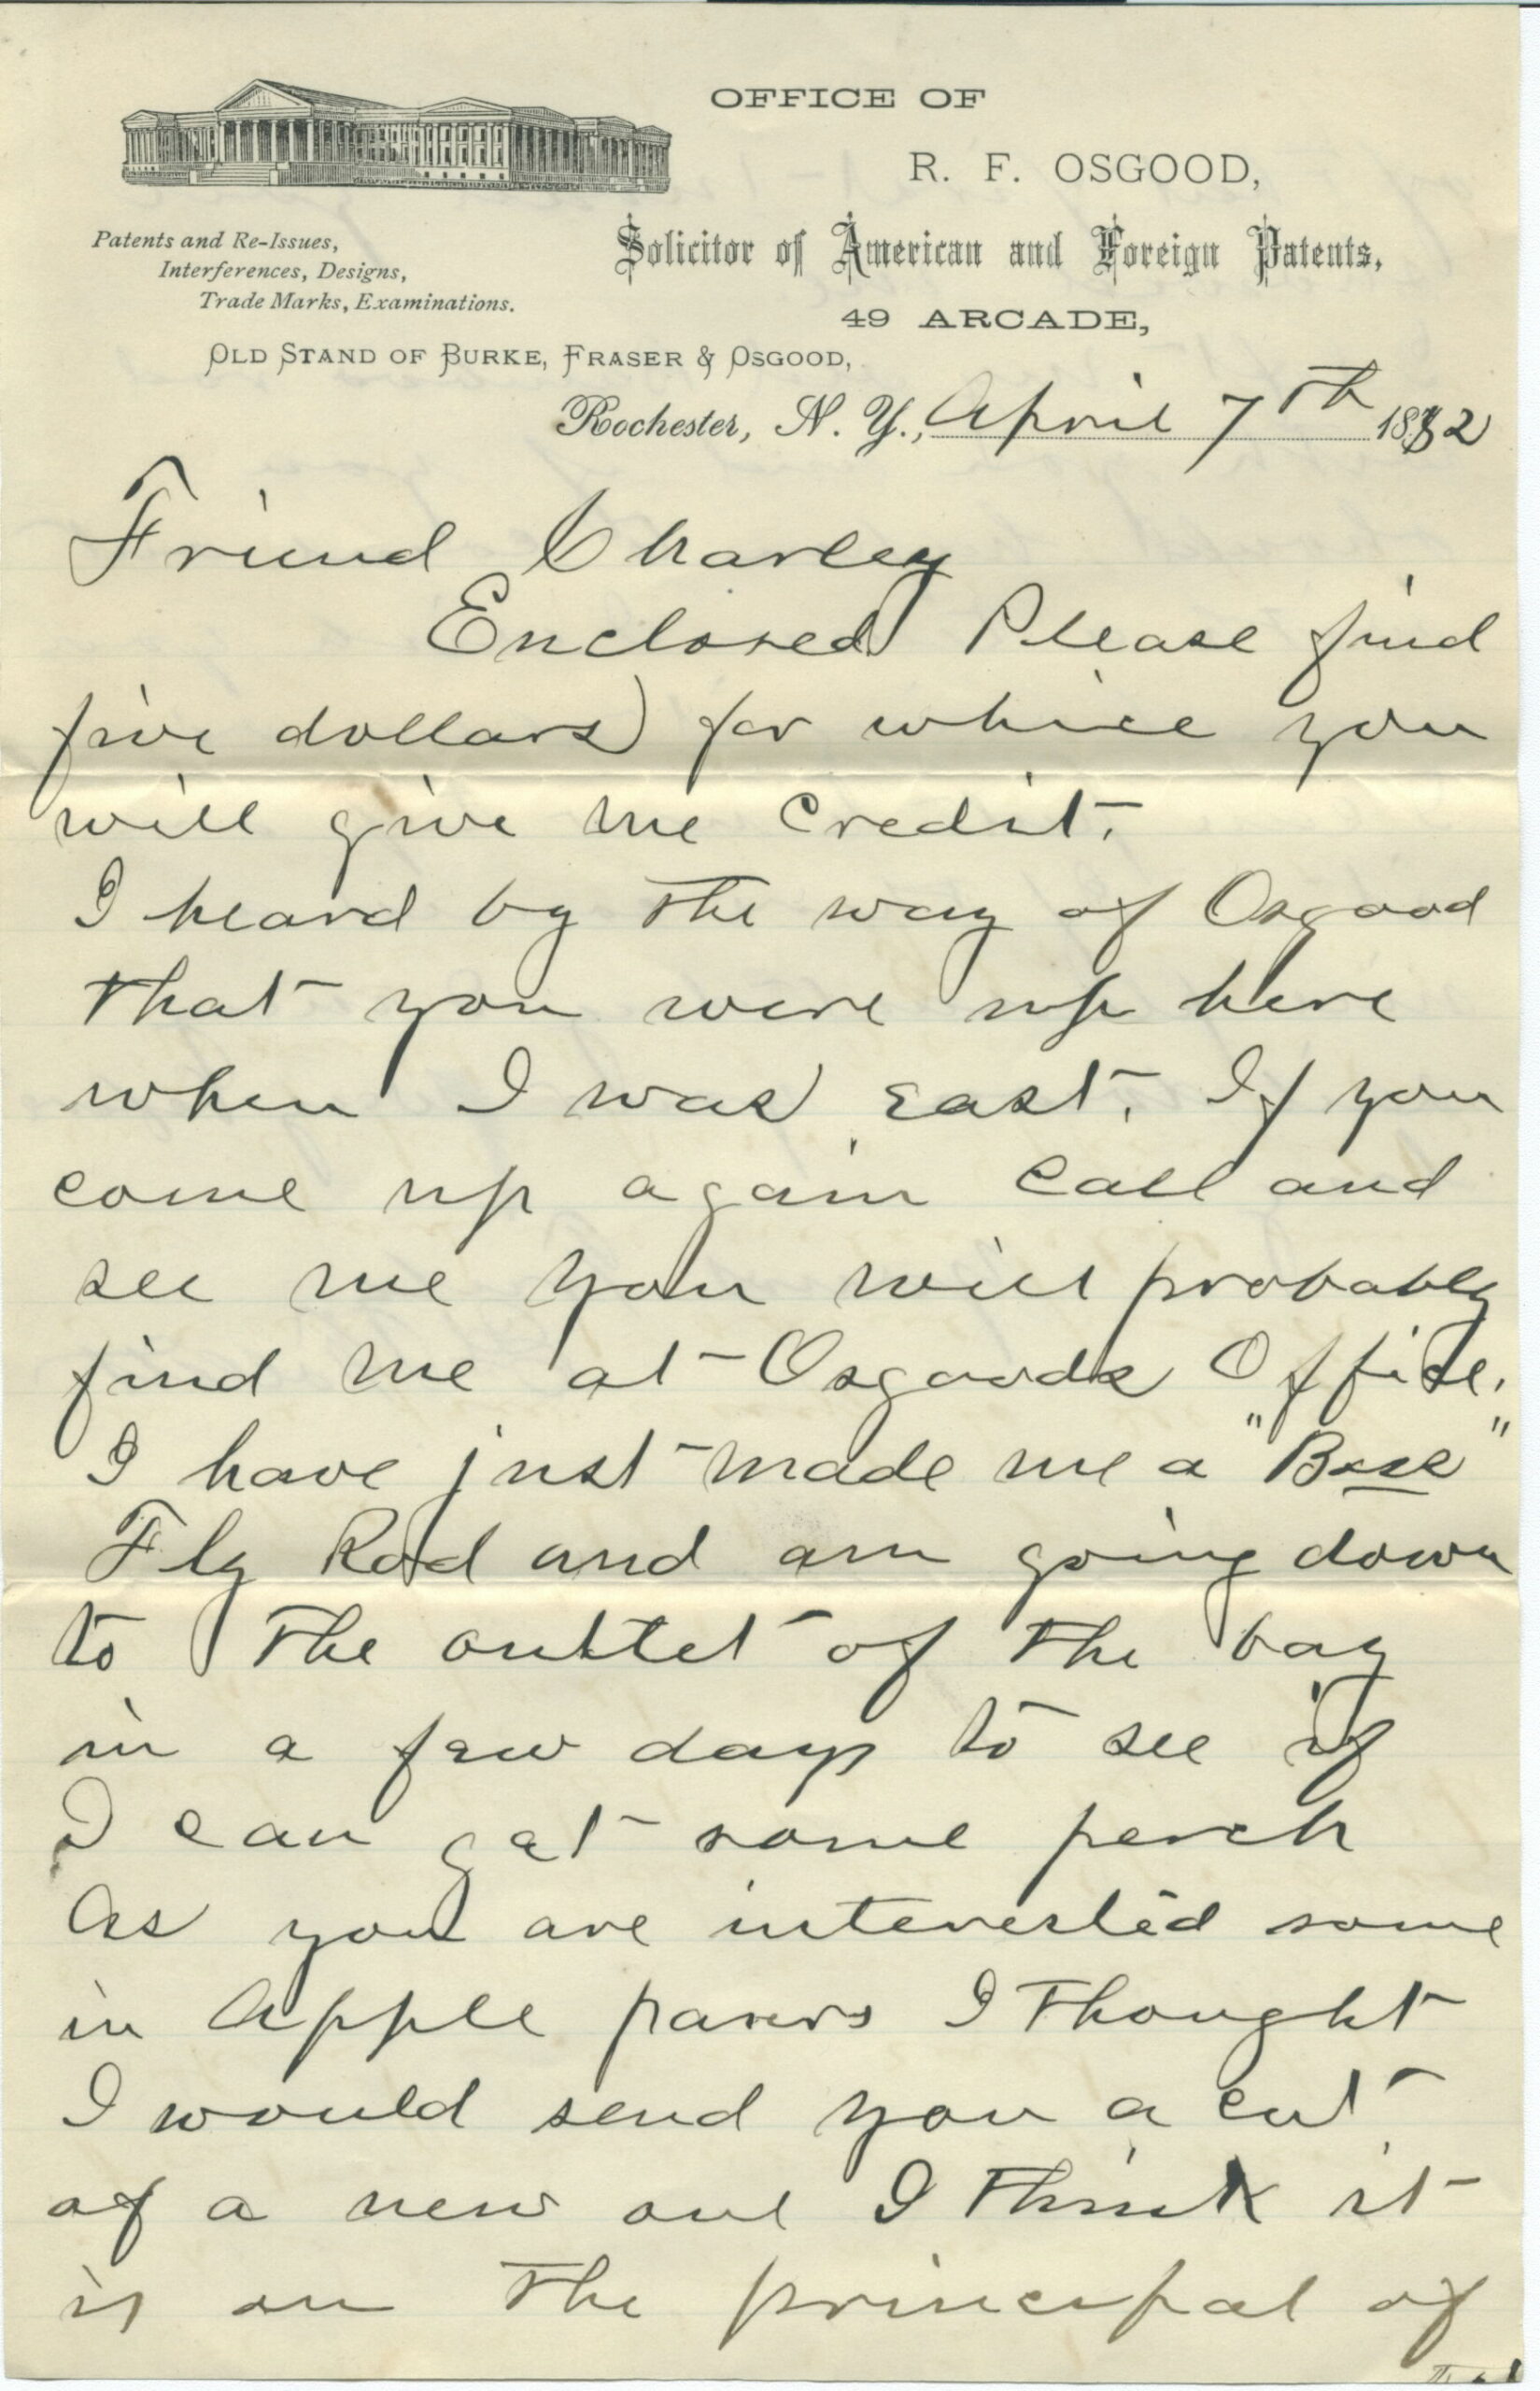 OFFICE OF
R. F. OSGOOD,
Solicitor of American and Foreign Patents,
49 ARCADE,
Patents and Re-Issues,
Interferences, Designs,
Trade Marks, Examinations.
OLD STAND OF BURKE, FRASER & OSGOOD,
Rochester, N. Y., April 7th 1882
Friend Charley
Enclosed Please find
five dollars for which you
will give me credit.
I heard by the way of Osgood
that you were up here
when I was east. If you
come up again call and
see me you will probably
find me at Osgoods Office.
I have just made me a "Boss"
Fly Rod and am going down
to the outlet of the bay
in a few days to see if
I can get some perch
As you are interested some
in Apple parers I thought
I would send you a cut
of a new one I think it
is on the principal of